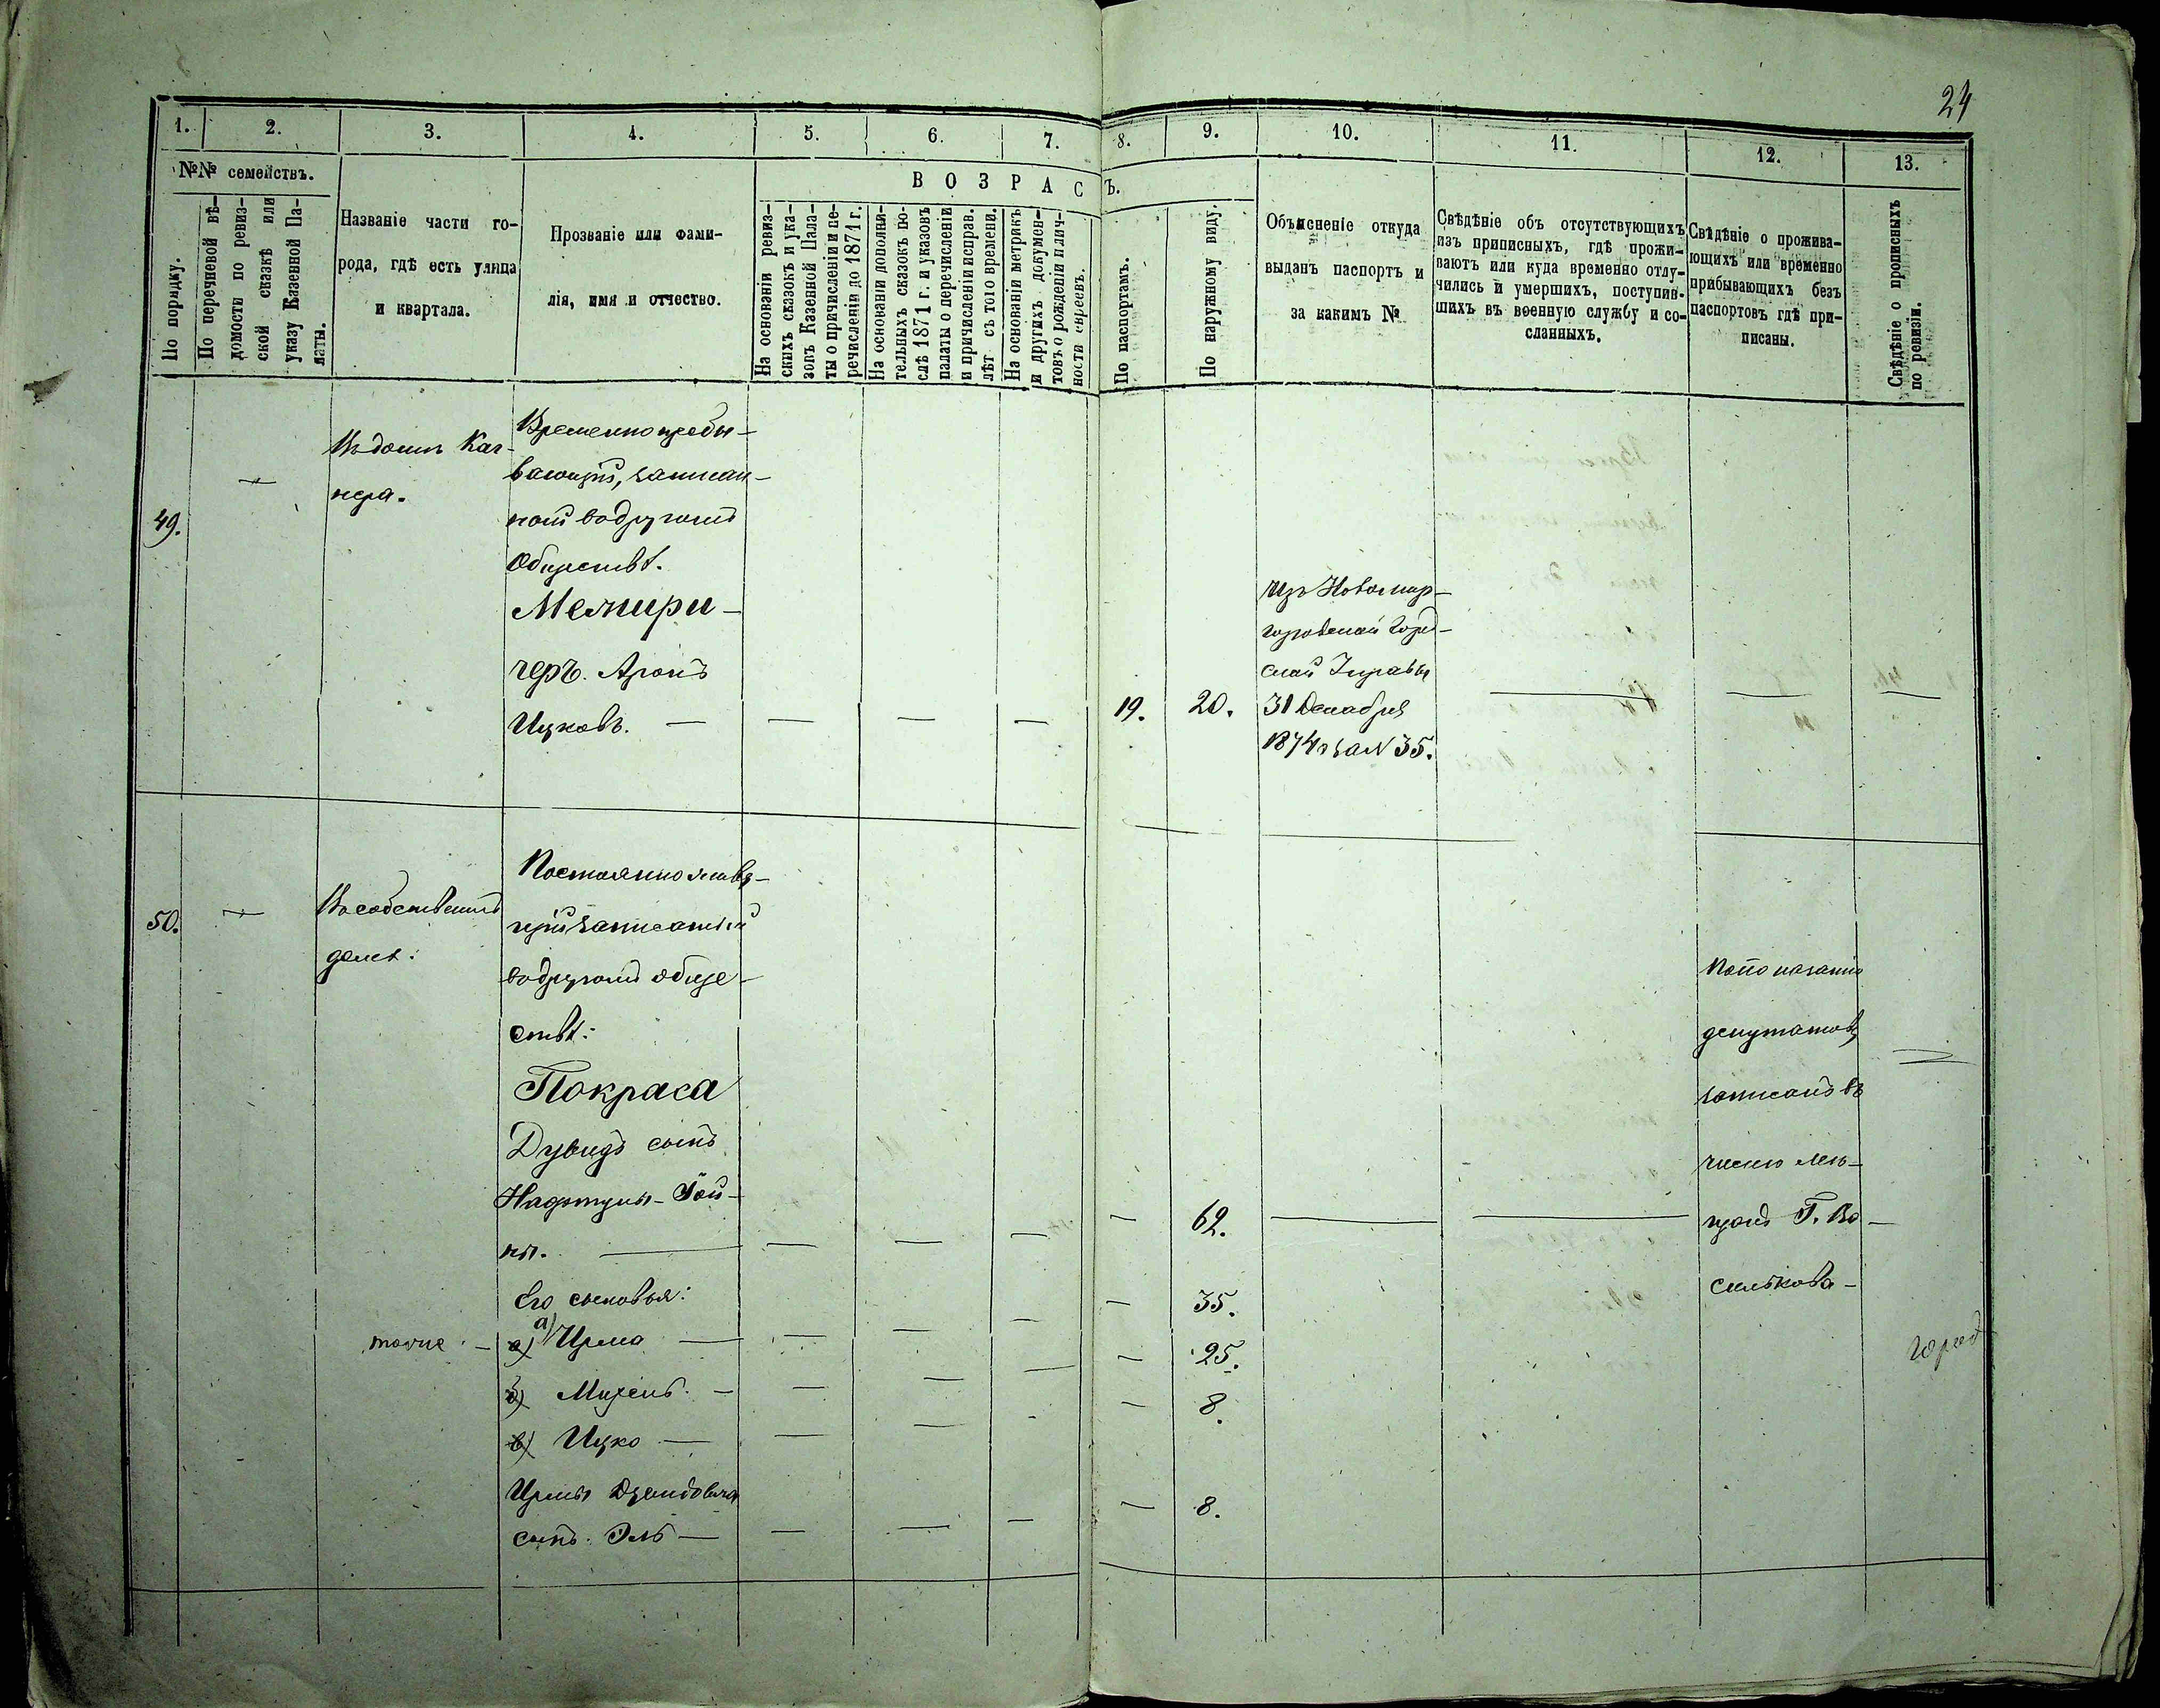 24
1. 2. 3. 4. 5. 6. 7. 8. 9. 10. 11. 12. 13.
№№ семействъ.
По порядку.
По перечневой вѣ-
домости по ревиз-
ской сказкѣ или
указу Казенной Па-
латы.
Названіе части го-
рода, гдѣ есть улица
и квартала.
Прозваніе или фами-
лія, имя и отчество.
ВОЗРАСЪ.
На основаніи ревиз-
скихъ сказокъ и ука-
зовъ Казенной Пала-
ты о причисленіи и пе-
речисленіи до 1871 г.
На основаніи дополни-
тельныхъ сказокъ по-
слѣ 1871 г. и указовъ
палаты о перечисленіи
и причисленіи исправ.
лѣт съ того времени.
На основаніи метрикъ
и другихъ докумен-
товъ о рожденіи и лич-
ности евреевъ.
По паспортамъ.
По наружному виду.
Объясненіе откуда
выданъ паспортъ и
за какимъ №
Свѣдѣніе объ отсутствующихъ
изъ приписныхъ, гдѣ прожи-
ваютъ или куда временно отлу-
чились и умершихъ, поступив-
шихъ въ военную службу и со-
сланныхъ.
Свѣдѣніе о прожива-
ющихъ или временно
прибывающихъ безъ
паспортовъ гдѣ при-
писаны.
Свѣдѣніе о прописныхъ
по ревизіи.
49.
Въ домѣ
нера.
Временно пребы-
вающій, записан-
ный в другомъ
Обществѣ.
Межири-
черъ. Аронъ
Ицковъ.
19. 20.
Изъ Новомир-
городской Город-
ской Управы
31 Декабря
1874 г за N 35.
50.
В собственномъ
домѣ:
Постоянно живу-
щій записаный
в другомъ обще-
ствѣ:
Покраса
Дувидъ сынъ
62.
Его сыновья:
тоже а) Ирма 35.
б) Михель 25.
в) Ицко 8.
Ирмы Дувидовича
сынъ Эль 8.
По показанію
депутатовъ,
записанъ въ
число мѣ-
щанъ Г. Во-
город